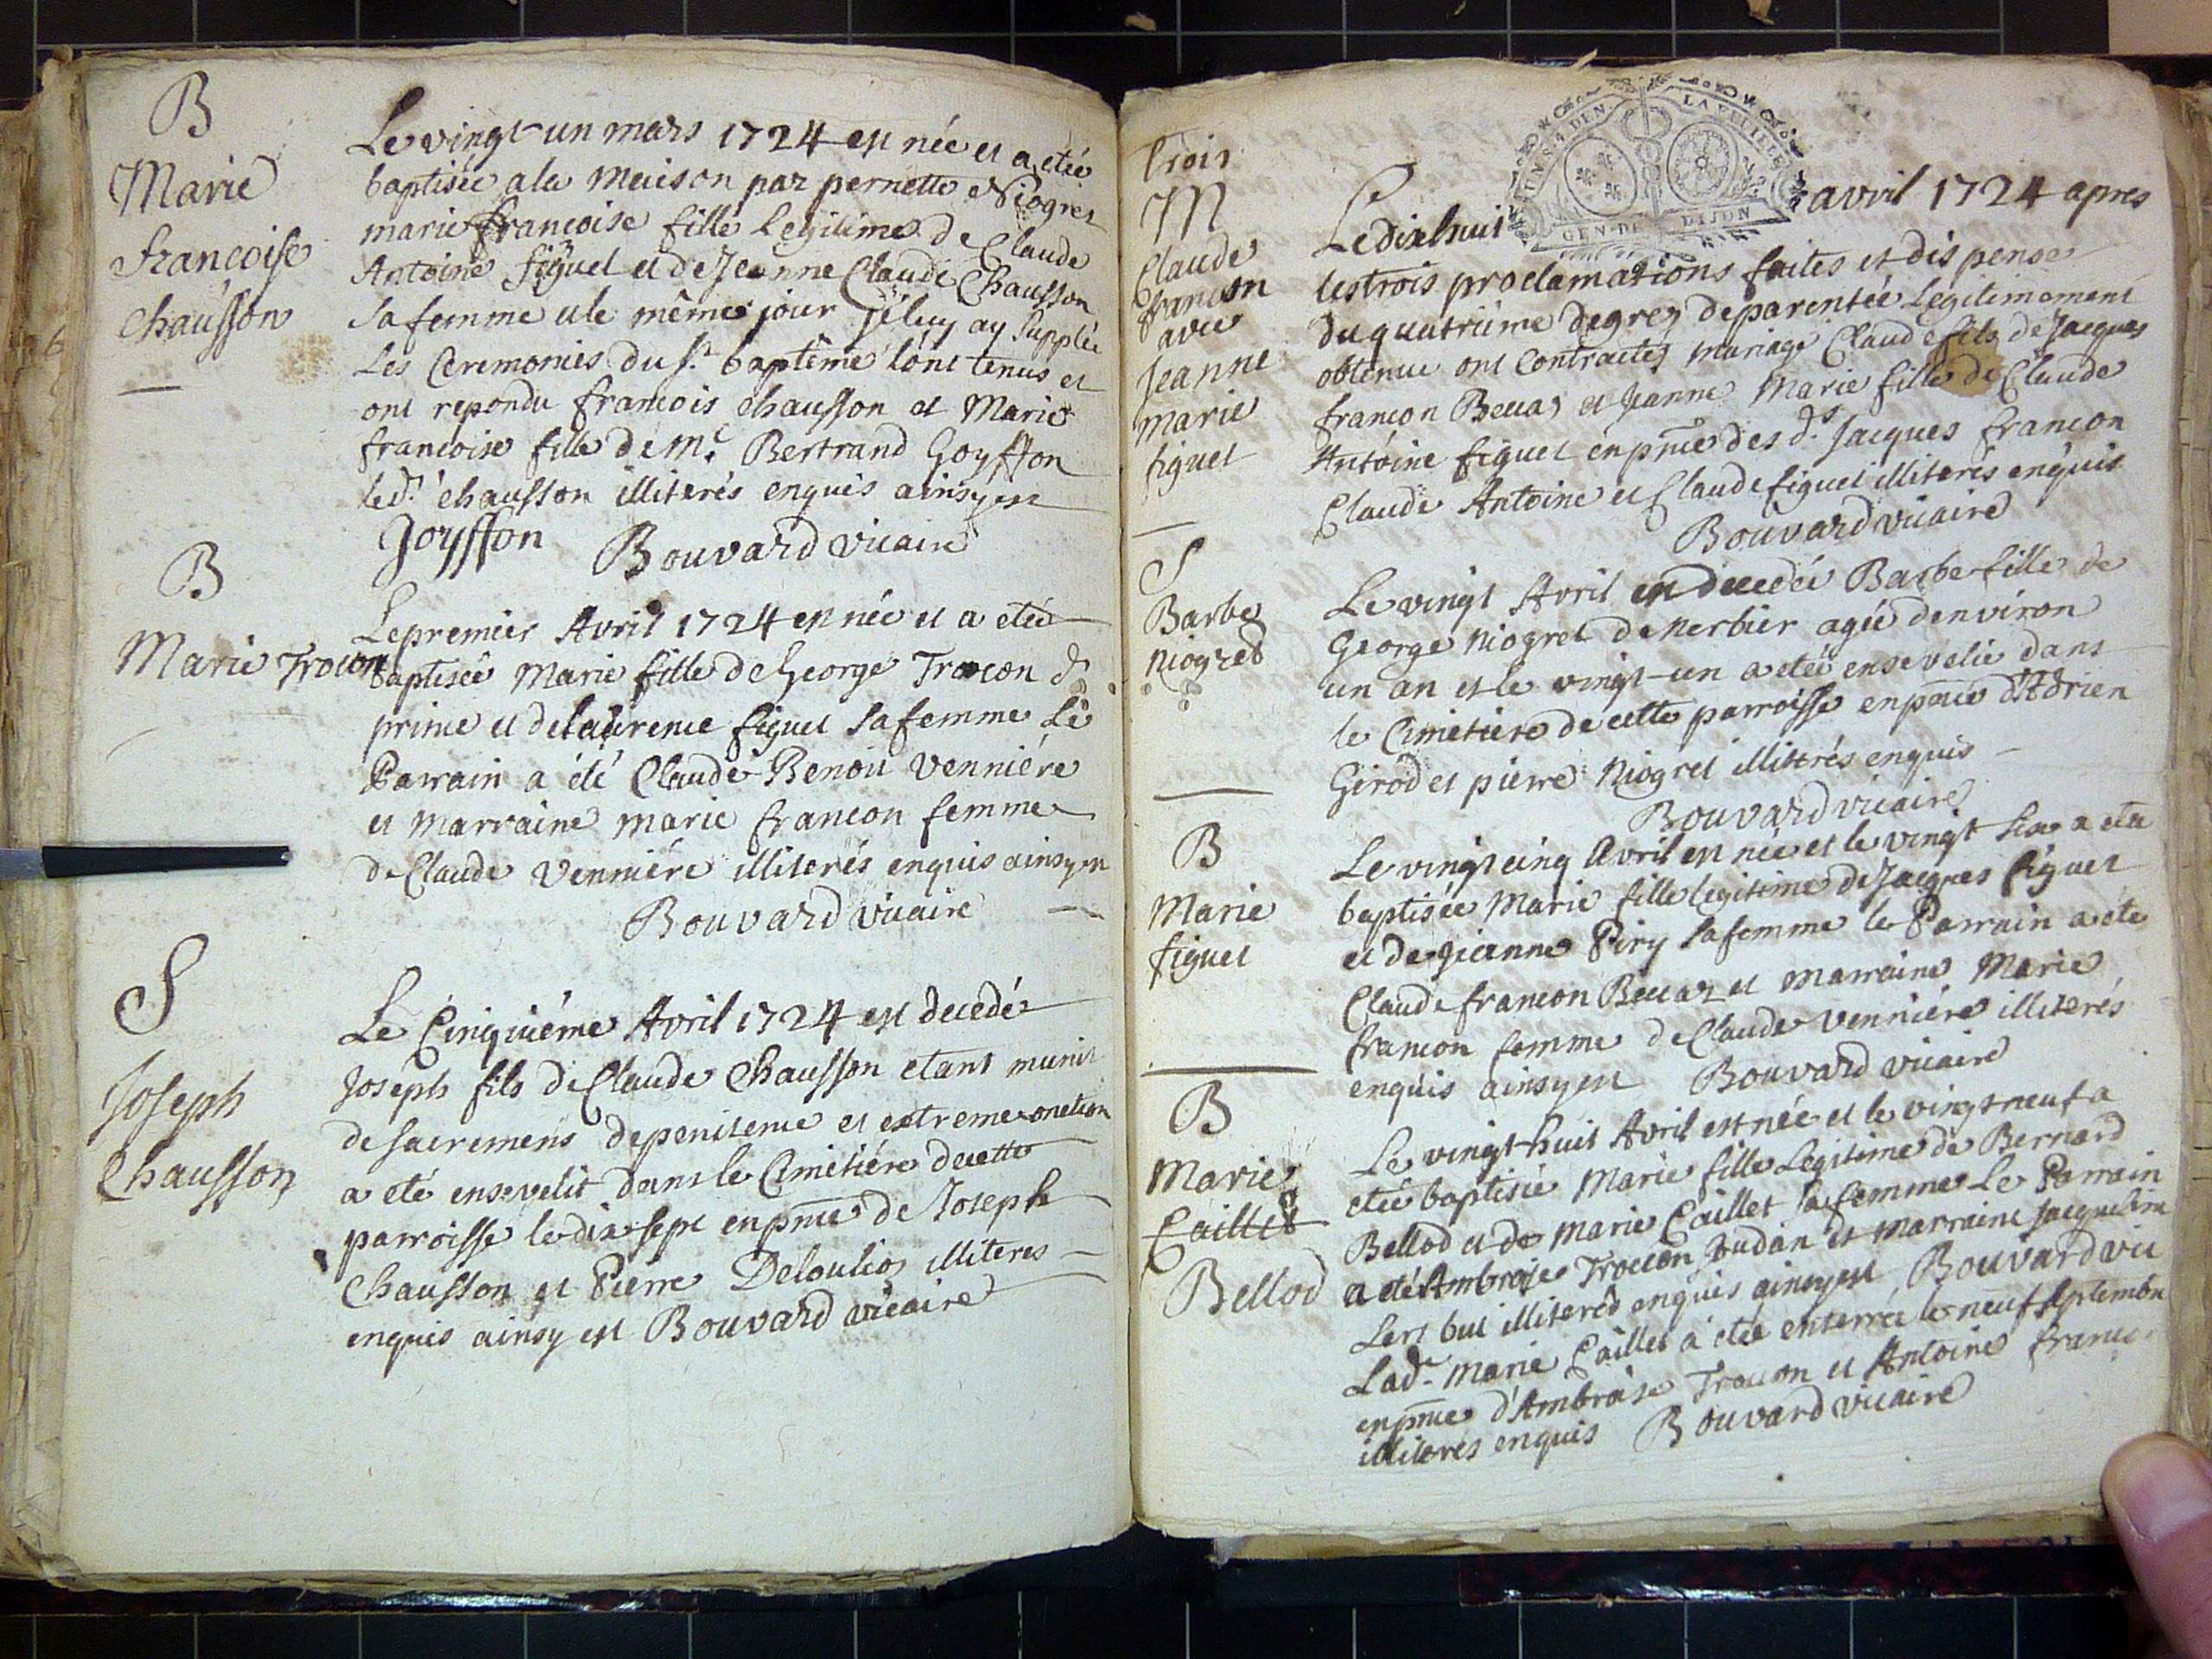 B
Marie
francoise
chausson
Le vingt-un mars 1724 est née et a etée
baptisée a la maison par pernette Niogret
marie francoise fille Legitime de Claude
Antoine figuet et de Jeanne Claude Chausson
sa femme et le même jour je luy ay supplée
Les Ceremonies du st. baptême l'ont tenus et
ont repondu francois chausson et Marie
francoise fille de me. Bertrand Goyffon
led. chausson illiterés enquis ainsy est
Joyffon Bouvard vicaire
B
Marie Trocon
Le premier Avril 1724 est née et a etée
baptisée Marie fille de George Trocon d
prime et de laurence figuet sa femme Le
Parrain a été Claude Benoit Venniére
et marraine marie francon femme
de Claude Venniére illiterés enquis ainsy est
Bouvard vicaire
S
Joseph
Chausson
Le Cinquiéme Avril 1724 est decedé
Joseph fils de Claude Chausson etant munit
de sacremens de penitence et extreme onction
a eté ensevelit dans le Cimetiére de cette
parroisse le dix sept en pnce de Joseph
Chausson et Pierre illiteres
enquis ainsy est Bouvard vicaire
trois
UN S. 4 DEN. LA FEUILLE
GEN. DE DIJON
M
Claude
francon
avec
Jeanne
marie
figuet
Le dixhuit avril 1724 apres
les trois proclamations faites et dispense
du quatriéme degrez de parentée Legitimement
obtenue ont contractez mariage Claude fils de Jacques
francon Beccaz et Jeanne Marie fille de Claude
Antoine figuet en pnce des ds. Jacques francon
Claude Antoine et Claude figuet illiterés enquis
Bouvard vicaire
S
Barbe
Niogret
Le vingt Avril est decedée Barbe fille de
George Niogret de Nerbier agée denviron
un an et le vingt-un a eteé ensevelie dans
le Cimetiere de cette parroisse en pnce d'Adrien
Girod et pierre Niogret illiterés enquis
Bouvard vicaire
B
Marie
figuet
Le vingt cinq Avril est née et le vingt six a eté
baptisée Marie fille legitime de Jacques figuet
et de Jeanne Piry sa femme le Parrain a ete
Claude francon Beccaz et marraine Marie
francon femme de Claude Venniére illiterés
enquis ainsy est Bouvard vicaire
B
Marie
Caillet
Bellod
Le vingt-huit Avril est née et le vingt neuf a
etée baptisée Marie fille Legitime de Bernard
Bellod et de Marie Caillet sa femme Le Parrain
a eté Ambroise Trocon Judan et marraine Jacqueline
illiterés enquis ainsy est Bouvard vic
Lad. Marie Caillet a etée enterrée le neuf septembre
en pnce d'Ambroise Trocon et Antoine
illiteres enquis Bouvard vicaire